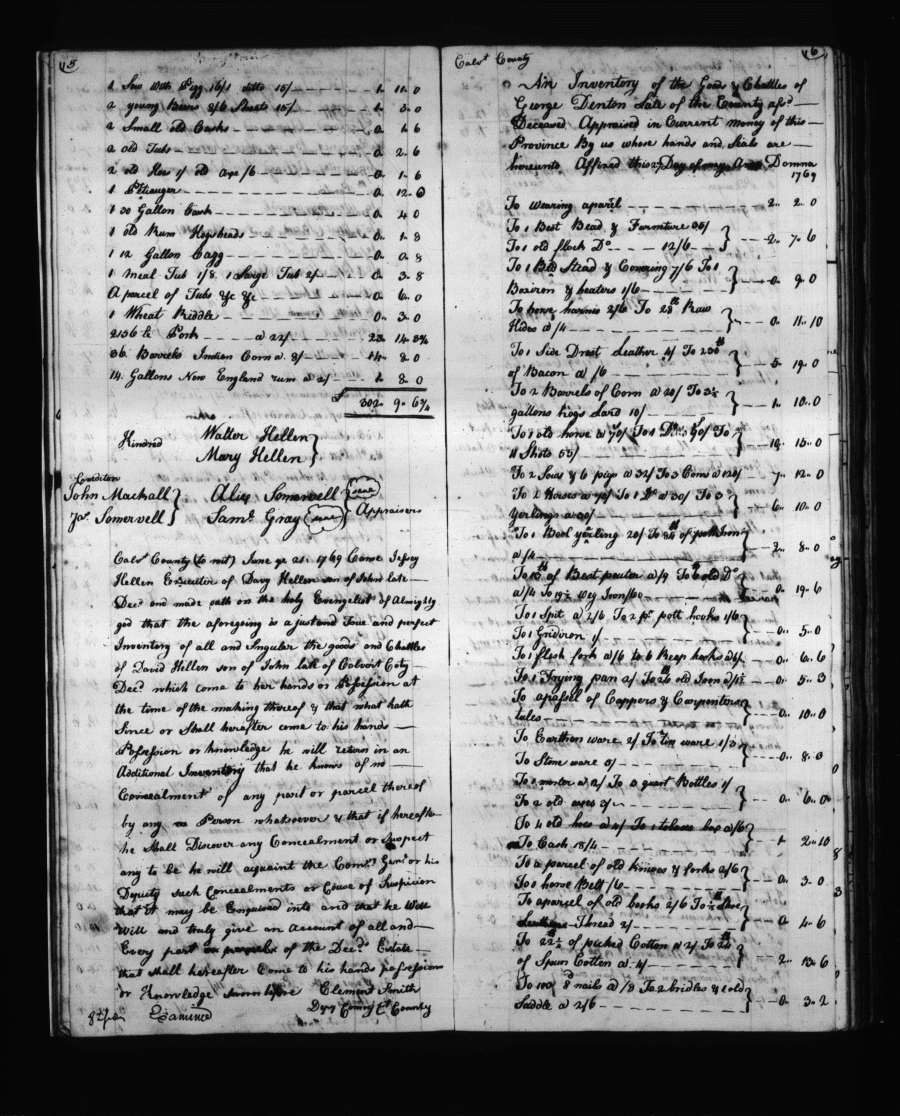 5
1 Sow With Pigg 16/1 ditto 15/ 1. 11. 0
2 young Boars 8/6 Shoats 15/ 1. 3. 0
2 Small old Casks 0. 1. 6
2 old Tubs 0. 2. 6
2 old Hoes 1 old axe /6 0. 1. 6
1 0. 12. 0
1 30 Gallon Cask 0. 4. 0
1 old Rum Hogsheads 0. 1. 8
1 12 Gallon Cagg 0. 0. 8
1 Meal Tub 1/8. 1 Tub 2/ 0. 3. 8
A parcel of Tubs &c &c 0. 6. 0
1 Wheat Riddle 0. 3. 0
2136 lb Pork a 22/ 23. 14.
36. Barrels Indian Corn a 8/ 14. 8. 0
14. Gallons New England rum a 2/ 1. 8. 0
£ 302. 9. 6¾
Kindred Walter Hellen
Mary Hellen
Creditors
John Mackall Alex Somervell seal
Jas. Somervell Saml. Gray seal Appraisers
Calvt. County (to wit) June ye 21. 1769 Came
Hellen Executor of Davy Hellen son of John late
Decd. and made oath on the holy Evangelists of Almighty
god that the aforegoing is a just and True and perfect
Inventory of all and Singular the goods and Chattles
of David Hellen son of John late of Calvert Coty
Decd. which come to her hands or Possession at
the time of the making thereof & that what hath
Since or Shall hereafter come to his hands
Possession or knowledge he will return in an
Additional Inventory that he knows of no
Concealment of any part or parcel thereof
by any Person whatsoever & that if hereafter
he Shall Discover any Concealment or Suspect
any to be he will aquaint the Comy. Genl. or his
Deputy Such Concealments or Cause of Suspicion
that it may be Enquired into and that he Will
Will and truly give an Account of all and
Every part or parcel of the Decds. Estate
that shall hereafter Come to his hands possession
or Knowledge Sworn before Clement Smith
Examined Dpy Comy Ct. County
6
Calvt. County
An Inventory of the Goods & Chattles of
George Denton Late of the County afsd.
Deceased Appraised in Current money of this
Province By us whose hands and Seals are
hereunto Affixed this 27 Day of may Domma
1769
To wearing aparel 2. 2. 0
To 1 Best Bead & Furniture 35/
To 1 old flock Do. 12/6 2. 7. 6
To 1 Bed Stead & Covering 7/6 To 1
Boxiron & heaters 1/6 0. 9. 0
To horse harnis 2/6 To 28lb Raw
Hides a /4 0. 11. 10
To 1 Side Drest Leather 4/ To 230lb
of Bacon a /6 5. 19. 0
To 2 Barrels of Corn a 10/ To
gallons hogs Lard 10/ 1. 10. 0
To 1 old horse a 70/ To 1 Do. To
11 Shots 55/ 10. 15. 0
To 2 Sows & 6 pigs a 32/ To 3 Cows a 120/ 7. 12. 0
To 2 Horses a 70/ To 1 Do a 30/ To 3
Yerlings a 30/ 6. 10. 0
To 1 Bool yerling 20/ To of pott Iron
a /4 2. 8. 0
To 15lb of Best puter a /9 To 6 old Do
a /4 To Weg Iron /60 0. 19. 6
To 1 Spit a 2/6 To 2 pr. pott hooks 1/6
To 1 Gridiron 1/ 0. 5. 0
To 1 flesh fork a /6 to 6 Reap hooks 0. 6. 6
To 1 Frying pan 2/ To 26 old Iron 0. 5. 3
To a pasell of Coppers & Carpenters
tules 0. 10. 0
To Earthen ware 2/ To tin ware 1/3
To Stone ware 0. 8. 0
To a morter a 2/ To a quart Bottles 1/
To 2 old axes 0. 6. 0
To 4 old hoes a 4/ To 1 tobacco hox a/6
To Cash 18/4 1. 2. 10
To a parcel of old knives & forks 2/6
To 1 horse Bell /6 0. 3. 0
To a parcel of old books 2/6 To ½ lb Shoe
Thread 2/ 0. 4. 6
To 22½ of picked Cotton a 2/ To 2lb
of Spun Cotton a 4/ 2. 13. 6
To 100 8d nails a /8 To 2 bridles & 1 old
Saddle a 2/6 0. 3. 2